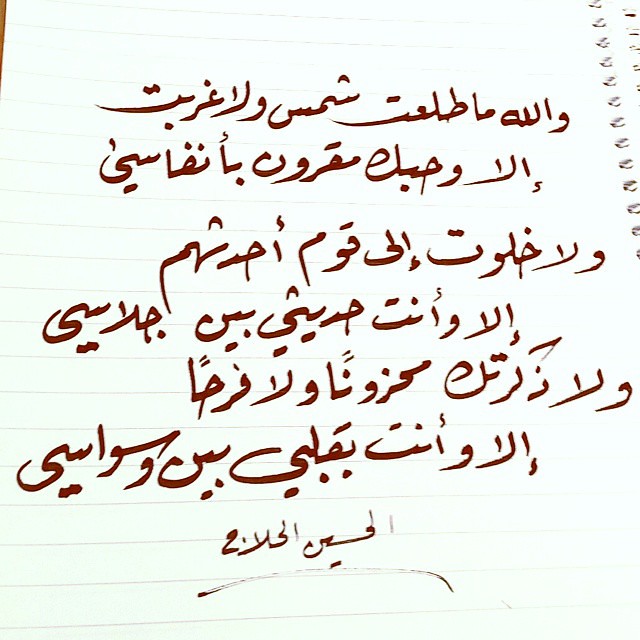 والله ما طلعت شمس ولا غربت
إلا وحبك مقرون بأنفاسي
ولا خلوت إلى قوم أحدثهم
إلا وأنت حديثي بين جلاسي
ولا ذكرتك محزونًا ولا فرحًا
إلا وأنت بقلبي بين وسواسي
الحسين الحلاج